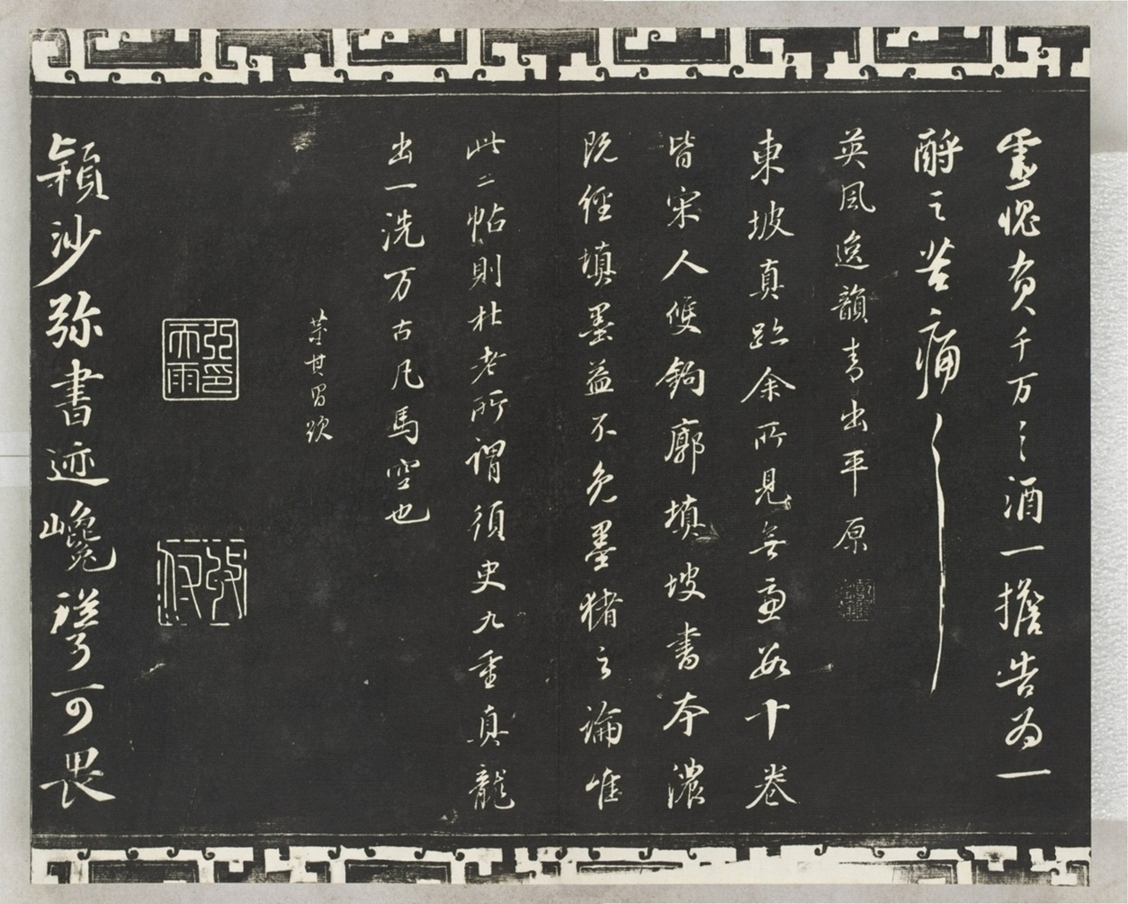 靈愧負千万々酒一擔告为一
酹之苦痛々
英風逸韻高出平原
東坡真跡余所見無慮數十卷
皆宋人雙鉤廓填坡書本濃
既經填墨益不免墨猪之論唯
此二帖則杜老所謂須臾九重真龍
出一洗万古凡馬空也
董其昌跋
穎沙弥書迹巉聳可畏